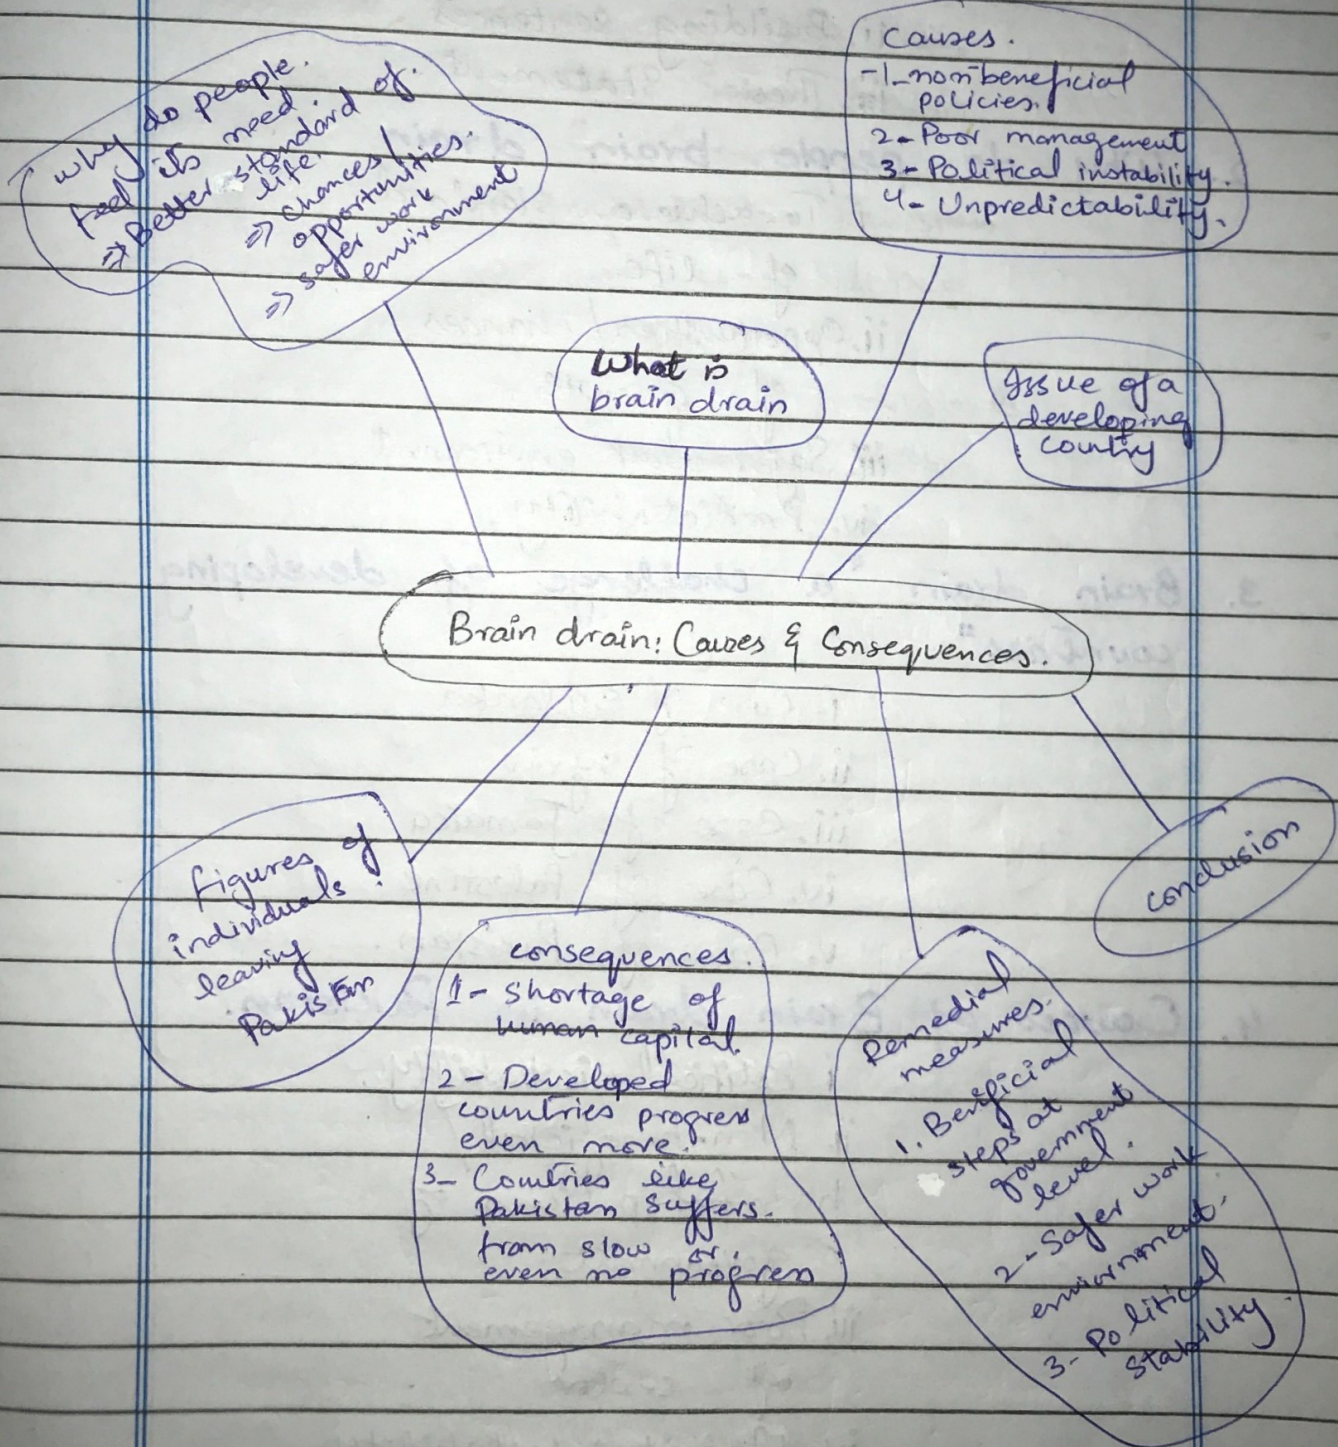 Why do people.
feel its need
⇒ Better standard of.
life.
⇒ Chances/
opportunities.
⇒ safer work
environment
Causes.
-1-non-beneficial
policies.
2- Poor management
3- Political instability.
4- Unpredictability.
What is
brain drain
Issue of a
developing
country
Brain drain: Causes & Consequences.
figures of
individuals.
leaving
Pakistan
consequences.
1- Shortage of
human capital.
2- Developed
countries progress
even more.
3- Countries like
Pakistan suffers.
from slow or.
even no progress
Remedial
measures.
1. Beneficial
steps at
government
level.
2- Safer work
enviornment.
3- Political
stability.
conclusion